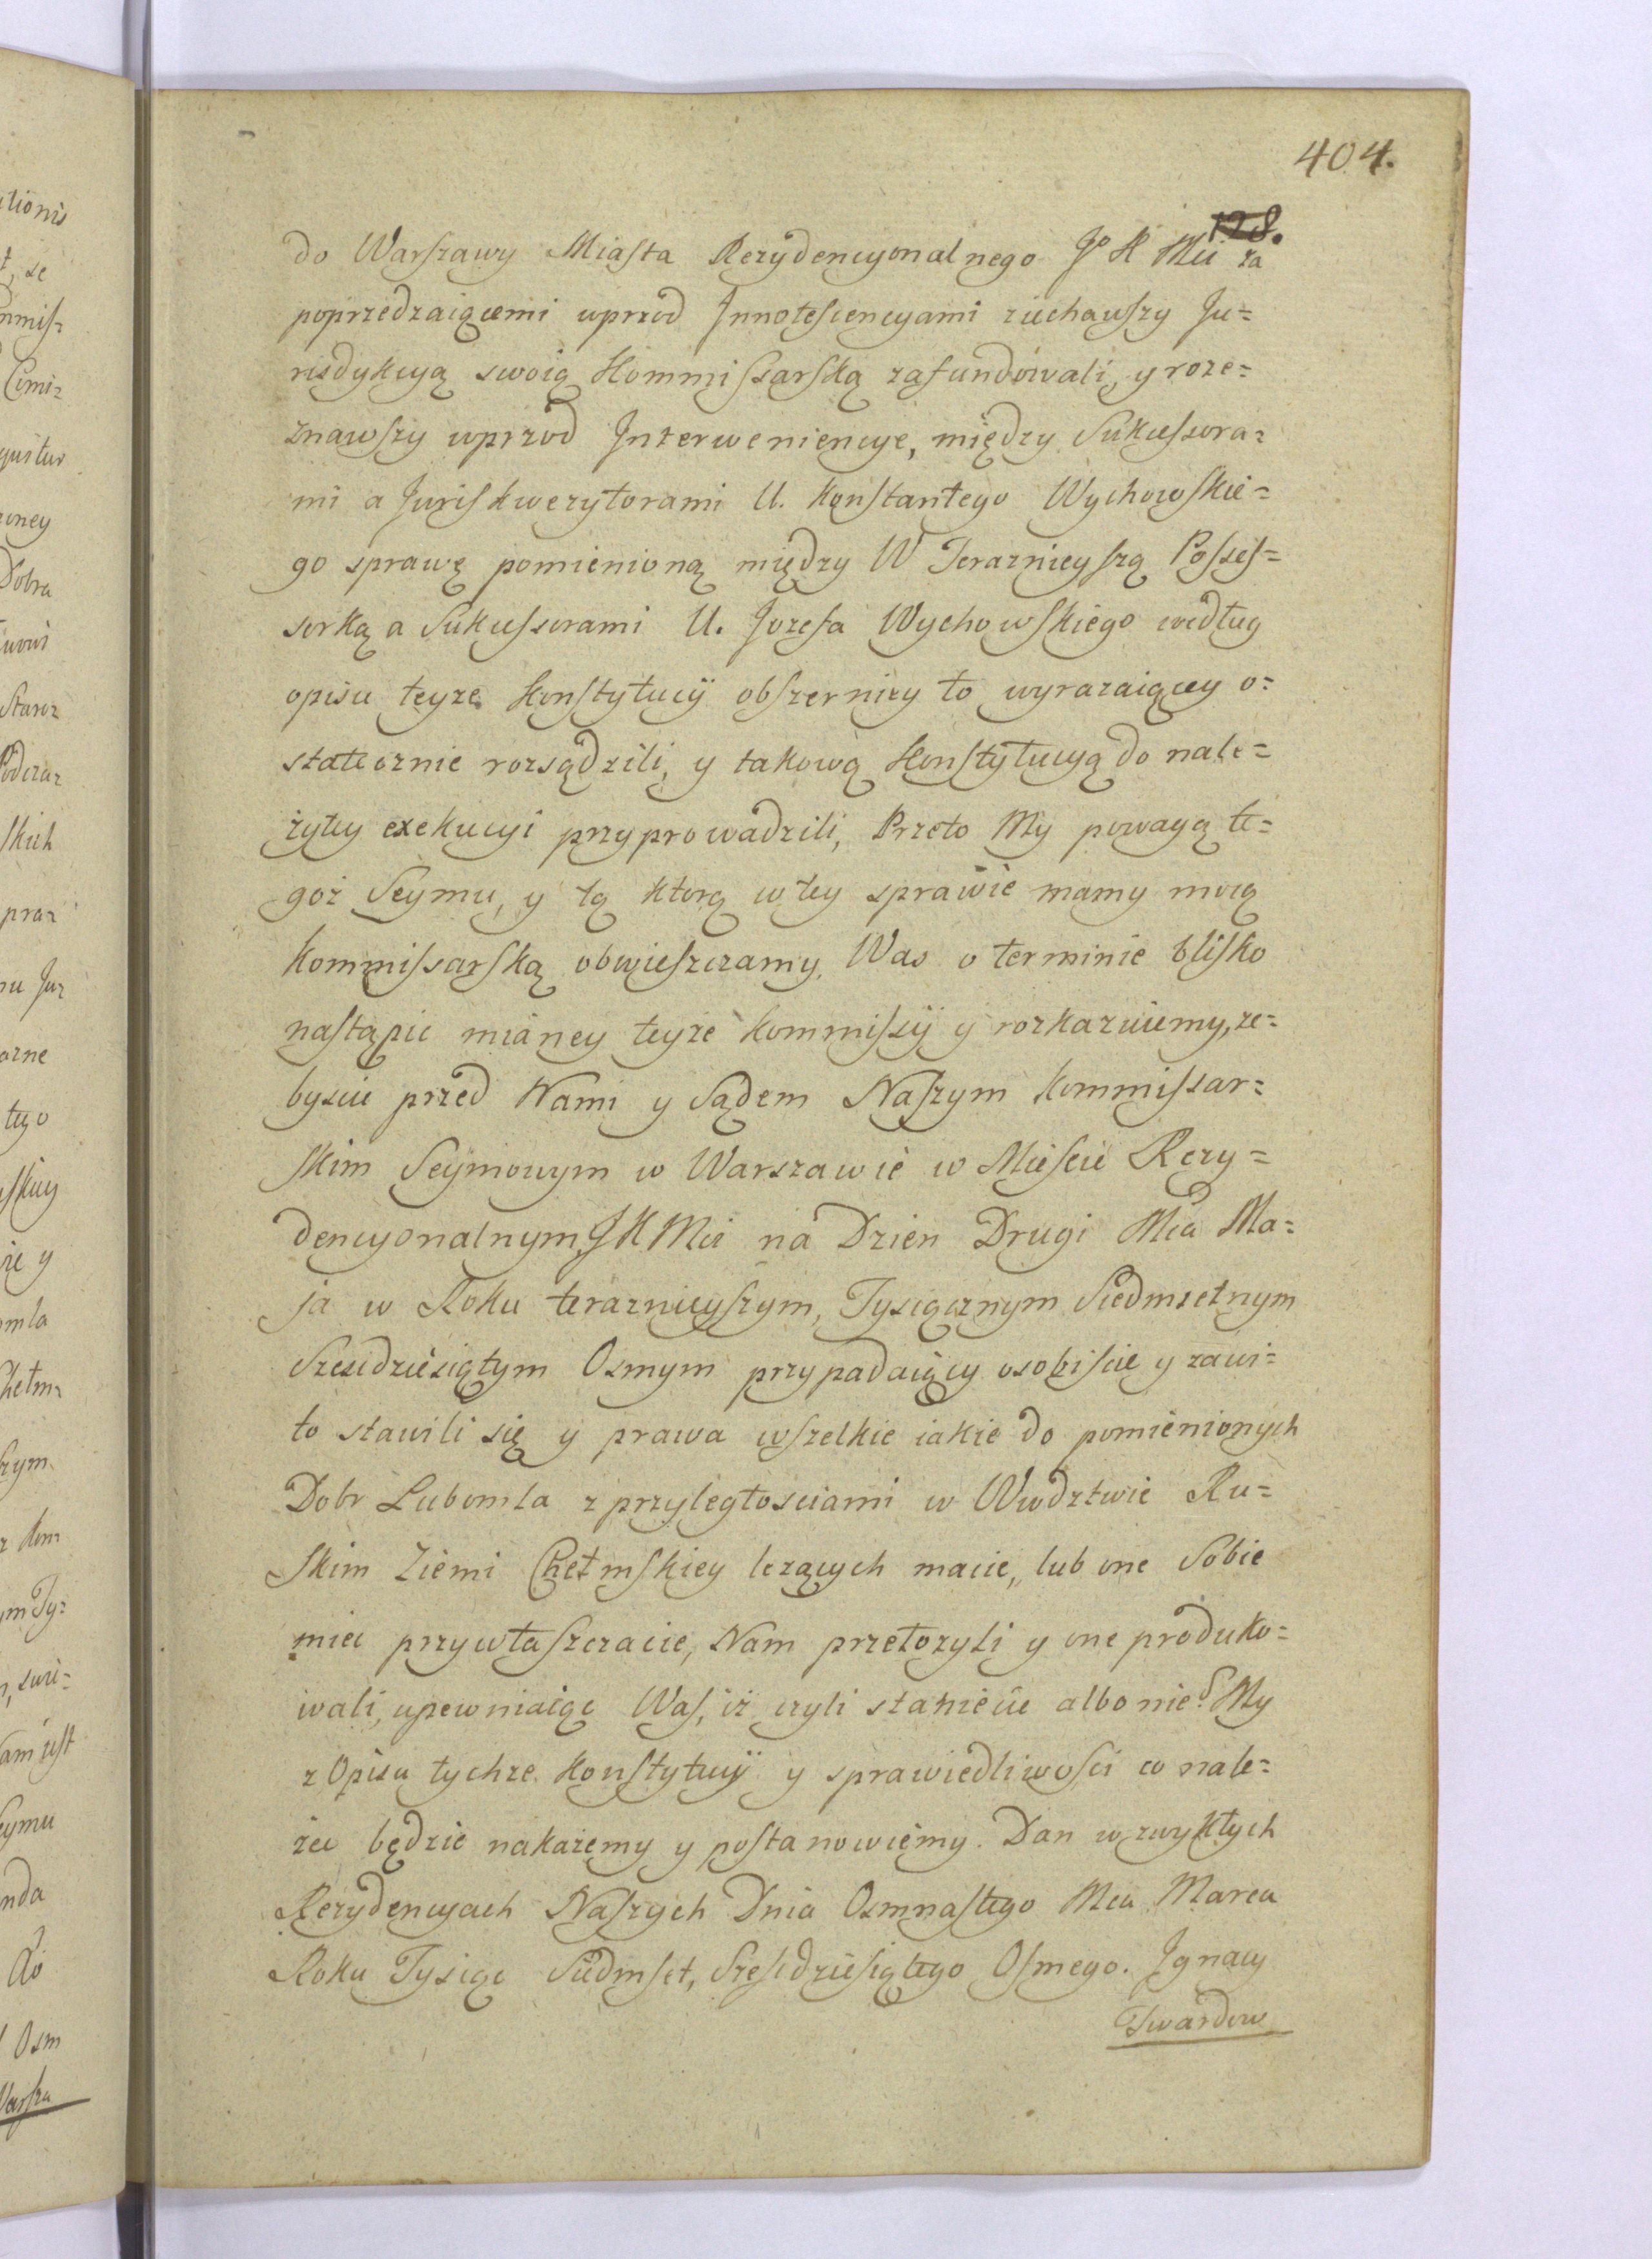 404.
128.
do Warszawy Miasta Rezydencyonalnego J K Mci za
poprzedzaiącemi uprzod Innotescencyami ziechawszy Ju=
risdykcyą swoią Kommissarską zafundowali, y roze=
znawszy wprzod Interweniencye, między Sukcessora=
mi a Juriskwezytorami U. Konstantego Wychowskie=
go sprawę pomienioną między W Teraznieyszą Posses=
sorką a Sukcessorami U. Jozefa Wychowskiego według
opisu teyze Konstytucÿ obszerniey to wyrazaiącey o=
statecznie rozsądzili, y takową Konstytucyą do nale=
żytey exekucyi przyprowadzili, Przeto My powagą te=
goż Seymu, y tą ktorą w tey sprawie mamy mocą
Kommissarską obwieszczamy Was o terminie blisko
nastąpic mianey teyże Kommissÿ y rozkazuiemy, ze=
byscie przed Nami y Sądem Naszym Kommissar=
skim Seymowym w Warszawie w Miescie Rezy=
dencyonalnym J K Mci na Dzien Drugi Mca Ma=
ja w Roku teraznieyszym, Tysiącznym Siedmsetnym
Szescdziesiątym Osmym przypadaiący osobiscie y zawi=
to stawili się y prawa wszelkie iakie do pomienionych
Dobr Lubomla z przyległosciami w Wwdztwie Ru=
skim Ziemi Chełmskiey lezących macie, lub one Sobie
miec przywłaszczacie, Nam przełozyli y one produko=
wali, upewniaiąc Was, iż czyli staniecie albo nie? My
z Opisu tychze Konstytucÿ y sprawiedliwosci co nale=
żec będzie nakażemy y postanowiemy. Dan w zwykłych
Rezydencyach Naszych Dnia Osmnastego Mca Marca
Roku Tysiąc Siedmset, Szescdziesiątego Osmego. Ignacy
Twardow